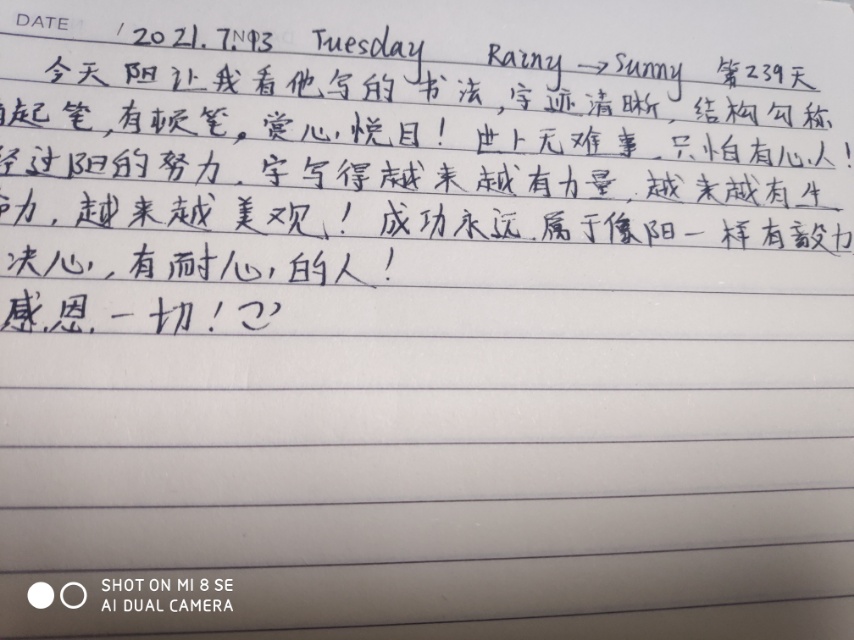 DATE / NO.
2021.7.13 Tuesday Rainy → Sunny 第239天
今天阳让我看他写的书法,字迹清晰,结构匀称
起笔,有顿笔。赏心悦目!世上无难事,只怕有心人!
经过阳的努力,字写得越来越有力量,越来越有生
命力,越来越美观!成功永远属于像阳一样有毅力
决心,有耐心的人!
感恩一切!
SHOT ON MI 8 SE
AI DUAL CAMERA